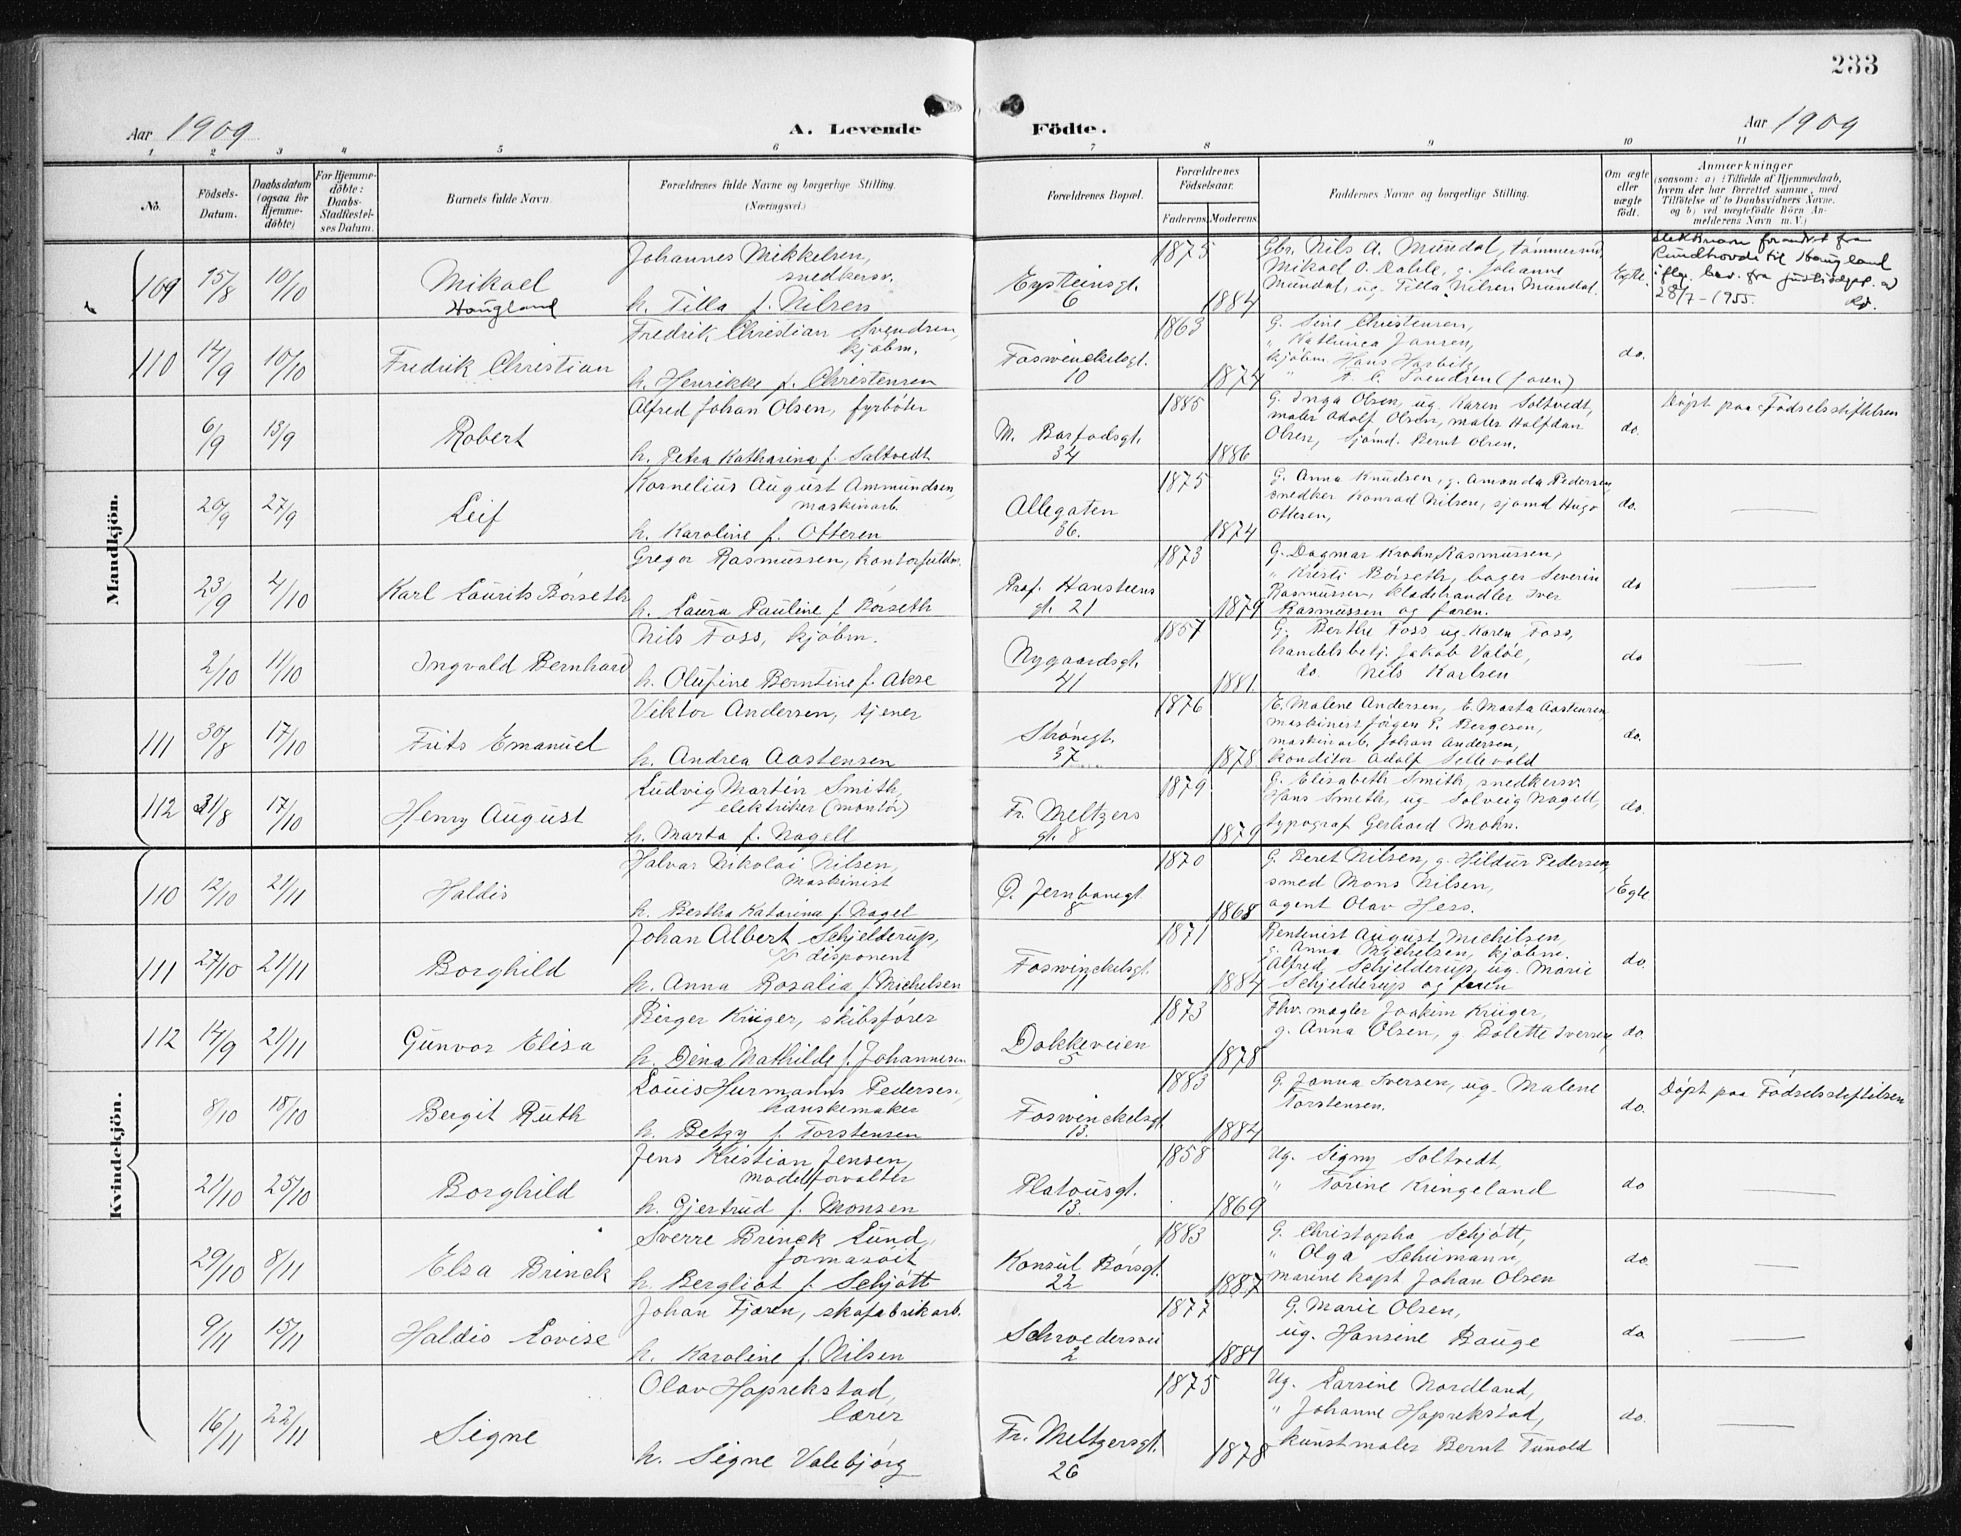 233
Aar 1909
A. Levende Födte.
Aar 1909
1 2 3 4 5 6 7 8 9 10 11
No.
Födsels-Datum.
Daabsdatum (ogsaa for Hjemme-döbte)
For Hjemme-döbte: Daabs-Stadfæstel-ses Datum.
Barnets fulde Navn
Forældrenes fulde Navne og borgerlige Stilling.
(Næringsvei.)
Forældrenes Bopæl.
Forældrenes Födselsaar.
Faderens Moderens
Faddernes Navne og borgerlige Stilling.
Om ægte eller uægte födt.
Anmærkninger
(saasom: a) i Tilfælde af Hjemmedaab,
hvem der har forrettet samme, med
Tilföielse af to Daabsvidners Navne,
og b) ved uægtefödte Börn An-
melderens Navn m. V.)
Mandkjön.
109 15/8 10/10 Mikael Haugland
Johannes Mikkelsen, snedkersv.
h. Tilla f. Nilsen
Eysteinsgt. 6
1875 1884
Gbr. Nils A. Mundal, tømmermd,
Mikael O. Dahle, g. Johanne
Mundal, ug. Tilla Nilsen Mundal.
Egte.
Slektsnavn forandret fra
Rundhovde til Haugland
iflg. bev. fra justisdept. av
28/7-1955.
110 14/9 10/10 Fredrik Christian
Fredrik Christian Svendsen, kjøbm.
h. Henrikke f. Christensen
Foswinckelsgt. 10
1863 1874
G. Sine Christensen,
" Kathinca Jansen,
kjøbm. Hans Hasbitz,
" A. C. Svendsen (faren)
do.
6/9 13/9 Robert
Alfred Johan Olsen, fyrbøter
h. Petra Katharina f. Saltvedt
M. Barfodsgt. 34
1885 1886
G. Inga Olsen, ug. Karen Soltvedt,
maler Adolf Olsen, maler Halfdan
Olsen, sjømd. Bernt Olsen.
do.
Døpt paa Fødselsstiftelsen
20/9 27/9 Leif
Kornelius August Ammundsen, maskinarb.
h. Karoline f. Ottesen
Allegaten 36.
1875 1874
G. Anna Knudsen, g. Amanda Pedersen,
snedker Konrad Nilsen, sjømd Hugo
Ottesen,
do.
23/9 4/10 Karl Laurits Børseth
Gregor Rasmussen, kontorfuldm.
h. Laura Pauline f. Børseth
Prof. Hansteens gt. 21
1873 1879
G. Dagmar Krohn Rasmussen,
" Kristi Børseth, bager Severin
Rasmussen, kladehandler Iver
Rasmussen og faren.
do
2/10 11/10 Ingvald Bernhard
Nils Foss, kjøbm.
h. Olufine Berntine f. Akse
Nygaardsgt. 41
1857 1881.
G. Berthe Foss ug. Karen Foss,
handelsbetj. Jakob Valøe,
do. Nils Karlsen
do
111 30/8 17/10 Frits Emanuel
Viktor Andersen, tjener
h. Andrea Aastensen
Strømgt. 37
1876 1878.
E. Malene Andersen, E. Marta Aastensen
maskinist Jørgen P. Bergesen,
maskinarb. Johan Andersen,
konditor Adolf Sellevold
do.
112 31/8 17/10 Henry August
Ludvig Martin Smith, elektriker (montør)
h. Marta f. Nagell
Fr. Meltzers gt. 8
1879 1879
G. Elisabeth Smith, snedkersv.
Hans Smith, ug. Solveig Nagell,
typograf Gerhard Mohn.
do.
Kvindekjön.
110 12/10 21/11 Haldis
Halvar Nikolai Nilsen, maskinist
h. Bertha Katarina f. Nagel
Ø. Jernbanegt 8
1870 1868
G. Beret Nilsen, g. Hildur Pedersen,
smed Mons Nilsen,
agent Olav Hess.
Egte
111 27/10 21/11 Borghild
Johan Albert Schjelderup, disponent
h. Anna Rosalia f. Michelsen
Foswinckelsgt. 11
1871 1884
Rentenist August Michelsen,
g. Anna Michelsen, kjøbm.
Alfred Schjelderup, ug. Marie
Schjelderup og faren
do.
112 14/9 21/11 Gunvor Elisa
Birger Krüger, skibsfører
h. Dina Mathilde f. Johannesen
Dokkeveien 5
1873 1878
Fhv. magler Joakim Krüger,
g. Anna Olsen, g Bolette Iversen,
do.
8/10 18/10 Bergit Ruth
Louis Hurmanns Pedersen hanskemaker
h. Betzy f. Torstensen
Foswinckelsgt 13.
1883 1884
G. Janna Iversen, ug. Malene
Torstensen.
do.
Døpt paa Fødselsstiftelsen
21/10 25/10 Borghild
Jens Kristian Jensen, modelforvalter
h. Gjertrud f. Monsen
Platousgt. 13.
1858 1869
Ug. Signy Soltvedt,
" Torine Kringeland
do
29/10 8/11 Elsa Brinck
Sverre Brinck Lund, farmasøit
h. Bergliot f. Schjøtt
Konsul Børsgt. 22
1883 1887
G. Christopha Schjøtt,
" Olga Schumann,
marinekapt Johan Olsen
do.
9/11 15/11 Haldis Lovise
Johan Fjæren, skofabrikarb.
h. Karoline f. Nilsen
Schrœdersvei 2
1877 1881
G. Marie Olsen,
ug. Hansine Bauge
do.
16/11 22/11 Signe
Olav Haprekstad, lærer
h. Signe Valebjørg
Fr. Meltzersgt. 26
1875 1878
Ug. Larsine Nordland,
" Johanne Haprekstad,
kunstmaler Bernt Tunold
do.